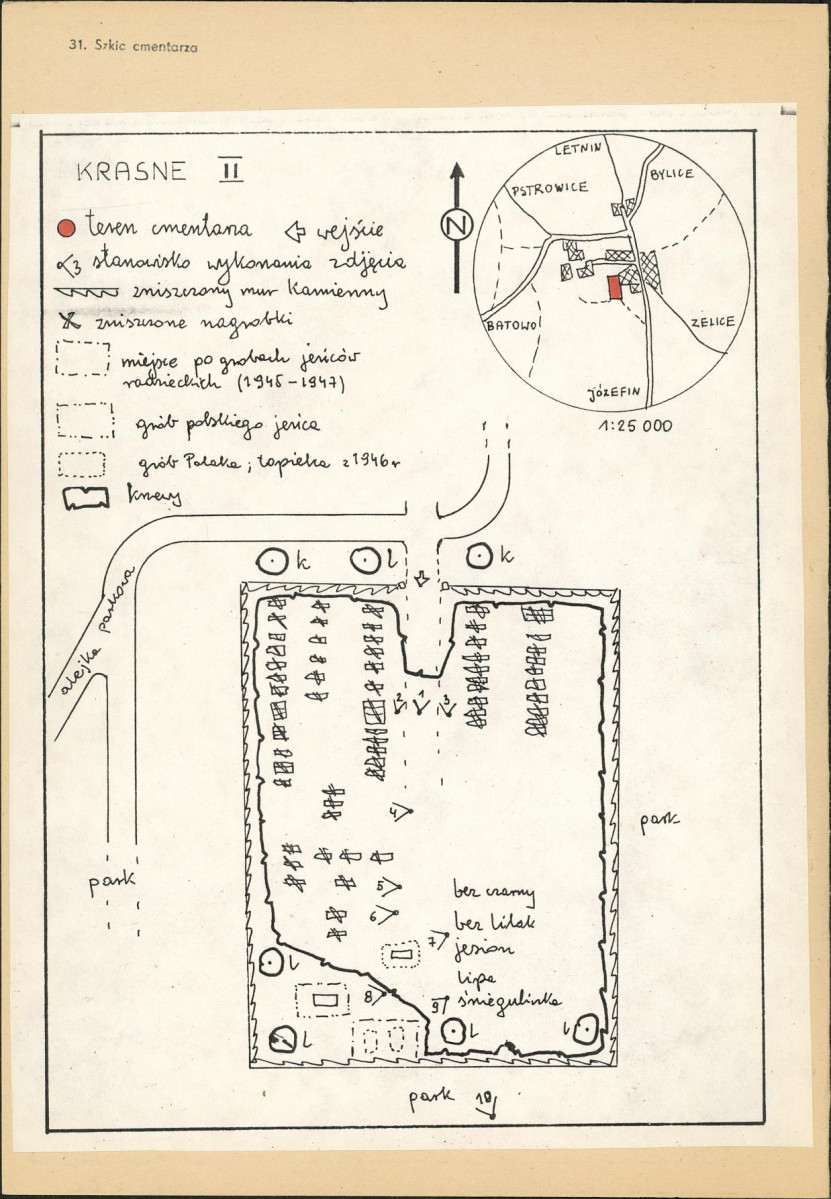 31. Szkic cmentarza
KRASNE II
teren cmentarza wejście
3 stanowisko wykonania zdjęcia
zniszczony mur kamienny
zniszczone nagrobki
miejsce po grobach jeńców
radzieckich (1945-1947)
grób polskiego jeńca
grób Polaka; topielca z 1946r
krzewy
N
LETNIN
PSTROWICE
BYLICE
BATOWO
ŻELICE
JÓZEFIN
1:25 000
k l k
alejka parkowa
2 1 3
4
park
park
5
6
7
8
9
bez czarny
bez lilak
jesion
lipa
śnieguliczka
l
l
l
l
park 10